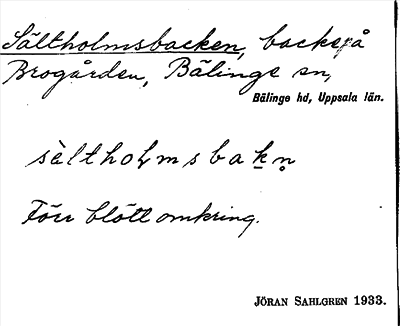 Sältholmsbacken, backe på
Brogården, Bälinge sn,
Bälinge hd, Uppsala län.
sèltholmsbakn̥
Förr blött omkring.
JÖRAN SAHLGREN 1933.